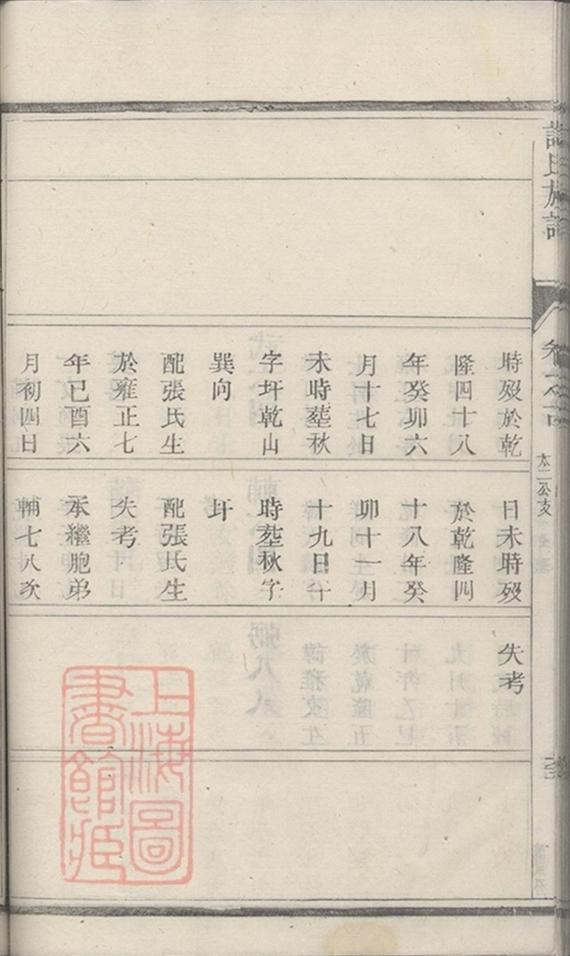 時歿於乾
隆四十八
年癸卯六
月十七日
未時塟秋
字圩乾山
巽向
配張氏生
於雍正七
年己酉六
月初四日
日未時歿
於乾隆四
十八年癸
卯十一月
十九日十
時塟秋字
圩
配張氏生
失考
承繼胞弟
輔七八次
失考
氏族譜
卷之
太二公支
上海圖
書館藏